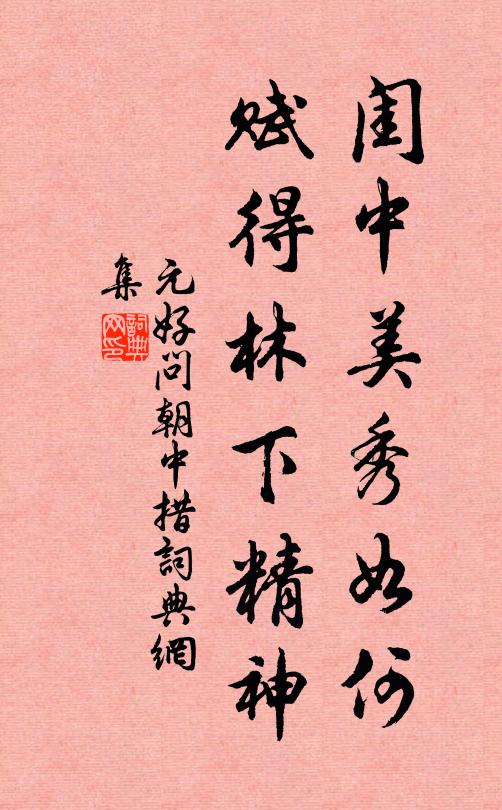 闺中美秀如何
赋得林下精神
元好问朝中措詞典網
集
詞典网印